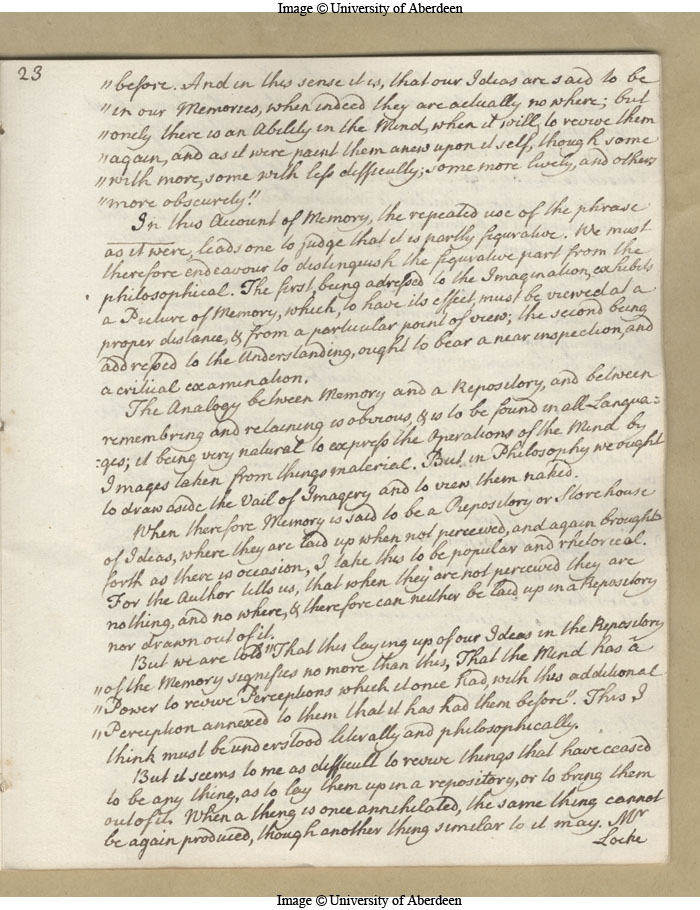 Image © University of Aberdeen
23
"before. And in this sense it is, that our Ideas are said to be
"in our Memories, when indeed they are actually no where; but
"onely there is an Ability in the Mind, when it will, to revive them
"again, and as it were paint them anew upon it self, though some
"with more, some with less difficulty; some more lively, and others
"more obscurely."
In this Account of Memory, the repeated use of the phrase
as it were, leads one to judge that it is partly figurative. We must
therefore endeavour to distinguish the figurative part from the
philosophical. The first, being adressed to the Imagination, exhibits
a Picture of Memory, which, to have its effect, must be viewed at a
proper distance, & from a particular point of view; the second being
addressed to the Understanding, ought to bear a near inspection, and
a critical examination.
The Analogy between Memory and a Repository, and between
remembring and retaining is obvious, & is to be found in all Langua=
=ges; it being very natural to express the Operations of the Mind by
Images taken from things material. But in Philosophy we ought
to draw aside the Vail of Imagery and to view them naked.
When therefore Memory is said to be a Repository or Storehouse
of Ideas, where they are laid up when not perceived, and again brought
forth as there is occasion, I take this to be popular and rhetorical.
For the Author tells us, that when they are not perceived they are
nothing, and no where, & therefore can neither be laid up in a Repository
nor drawn out of it.
But we are told "That this laying up of our Ideas in the Repository
"of the Memory signifies no more than this, That the Mind has a
"Power to revive Perceptions which it once had, with this additional
"Perception annexed to them that it has had them before". This I
think must be understood literally and philosophically.
But it seems to me as difficult to revive things that have ceased
to be any thing, as to lay them up in a repository, or to bring them
out of it. When a thing is once annihilated, the same thing cannot
be again produced, though another thing similar to it may. Mr
Locke
Image © University of Aberdeen